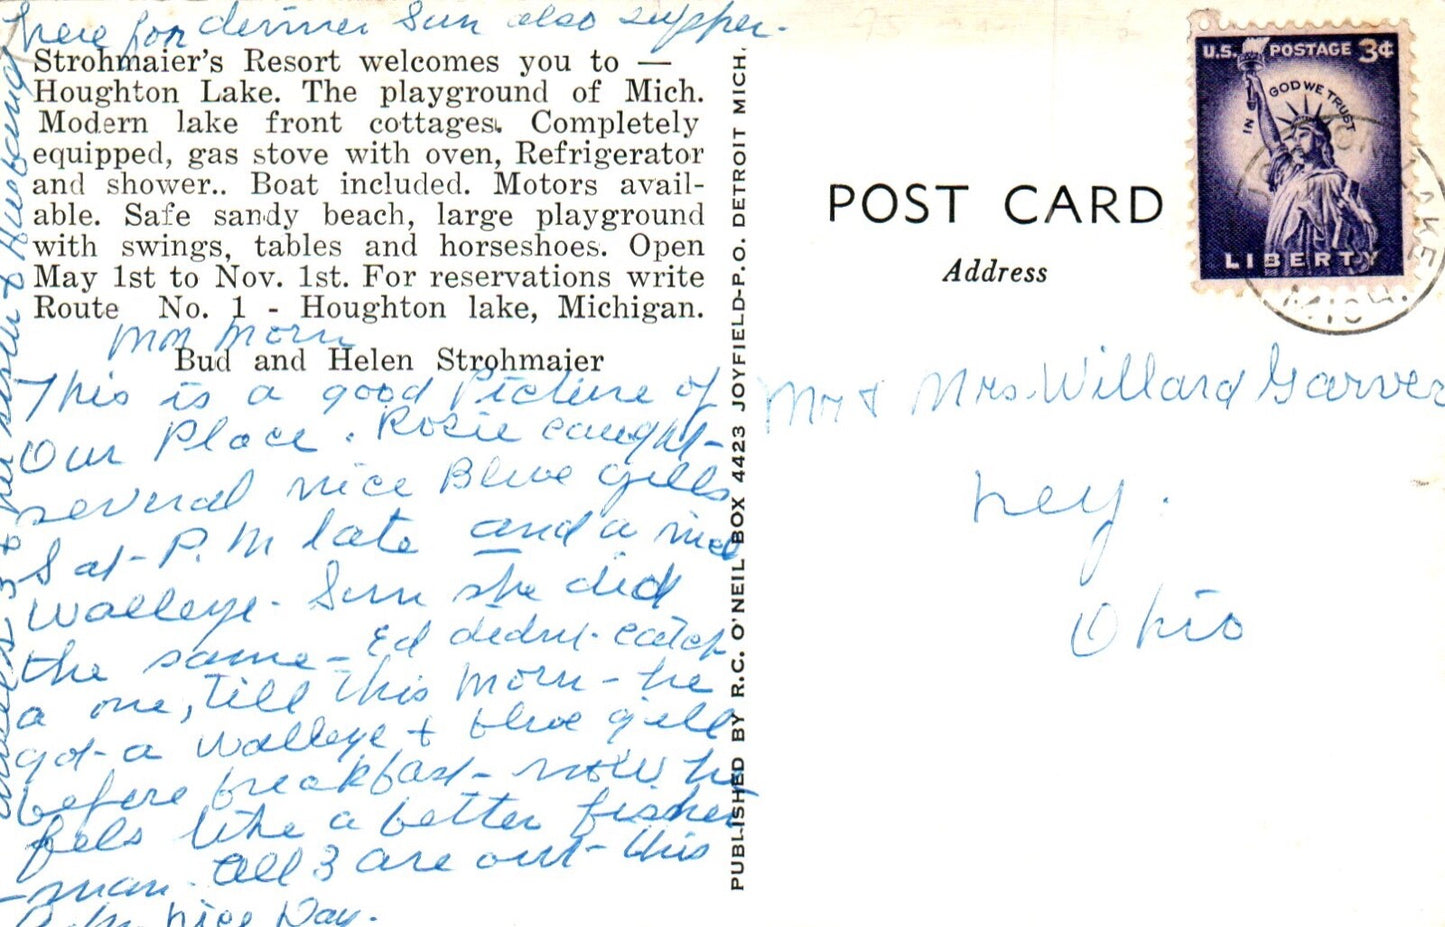 here for dinner Sun also supper.
Strohmaier's Resort welcomes you to —
Houghton Lake. The playground of Mich.
Modern lake front cottages. Completely
equipped, gas stove with oven, Refrigerator
and shower.. Boat included. Motors avail-
able. Safe sandy beach, large playground
with swings, tables and horseshoes. Open
May 1st to Nov. 1st. For reservations write
Route No. 1 - Houghton lake, Michigan.
Bud and Helen Strohmaier
Morn
This is a good Picture of
Our Place. Rosie caught
several nice Blue gills
Sat P.M late and a nice
walleye. Sun she did
the same - Ed didnt catch
a one, till this morn - he
got a walleye + blue gill
before breakfast - now he
fels like a better fisher
-man. All 3 are out this
nice Day.
her sister & Husband
PUBLISHED BY R.C. O'NEIL BOX 4423 JOYFIELD-P.O. DETROIT MICH.
POST CARD
Address
U.S. POSTAGE 3¢
IN GOD WE TRUST
LIBERTY
LAKE
MICH.
Mr & Mrs. Willard Garver
Ney.
Ohio